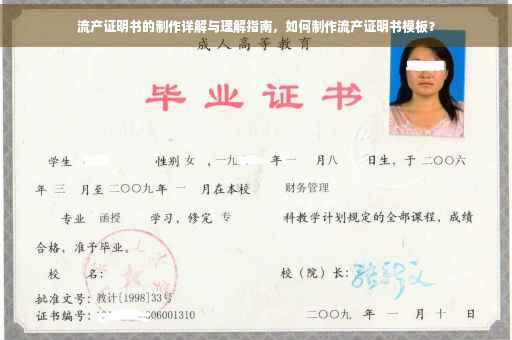 流产证明书的制作详解与理解指南，如何制作流产证明书模板？
成人高等教育
毕业证书
学生 性别 女 ，一九 年一 月八 日生，于二〇〇六
年 三 月至二〇〇九年 一 月在本校 财务管理
专业 函授 学习，修完 专 科教学计划规定的全部课程，成绩
合格，准予毕业。
校 名： 校（院）长：
批准文号：教计[1998]33号
证书编号： 06001310 二〇〇九 年 一 月 十 日